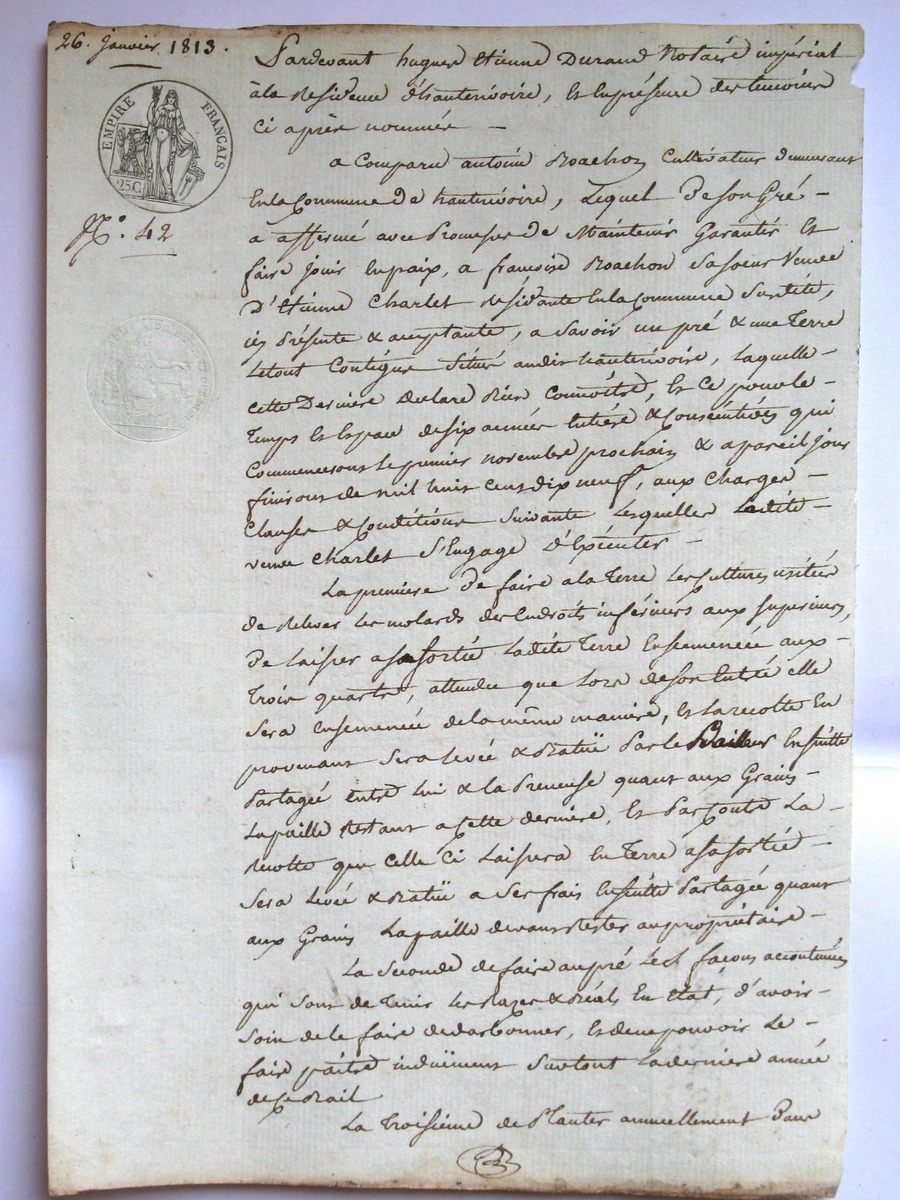 26. janvier 1813.
EMPIRE FRANÇAIS
25C.
N.° 42
Pardevant hugues Etienne Durand Notaire impérial
à la Residence d'hauterivoire, Et En présence des temoins
ci après nommés –
a Comparu antoine Roachon Cultivateur demeurant
En la Commune De hauterivoire, Lequel De son Gré –
a affermé avec Promesse De Maintenir Garantir Et
faire jouir En paix, a françoise Roachon Sa soeur Veuve
D'Etienne Charlet residante En la Commune Susdite,
ici Présente & acceptante, a Savoir un pré & une Terre
Le tout Contigus Situés audit hauterivoire, Laquelle –
cette Derniere declare Bien Connoitre, Et Ce pour le –
Temps Et Espace de six années Entières & Consécutives qui
Commenceront Le premier novembre prochain & a pareil jour
finiront de mil huit cent dix neuf, aux Charges –
Clauses & Conditions Suivante Lesquelles Ladite –
veuve Charlet S'Engage D'Executer –
La premiere De faire a la Terre Les Cultures usitées
de Relever Les molards des Endroits inferieurs aux Superieurs,
De Laisser a sa Sortie Ladite Terre Ensemencée aux –
Trois quarts, attendu que Lors de son Entrée elle
Sera Ensemencée de la même maniere, Et La recolte En
provenant Sera Levée & Battüe Par Le Bailleur Ensuitte
Partagée entre Lui & la Preneuse quant aux Grains –
La paille Restant a Cette derniere, Et Par Contre La –
recolte que Celle Ci Laissera En Terre a sa sortie –
Sera Levée & Battüe a Ses frais Ensuitte Partagée quant
aux Grains La paille devant Rester au propriétaire –
La Seconde de faire au pré Les façons accoutumées
qui Sont de Tenir Les Razes & Béals En Etat, d'avoir –
Soin de Le faire dedarbonner, Et de ne pouvoir Le –
faire paître induëment Surtout La derniere année
de Ce Bail
La Troisieme de Planter annuellement Dans